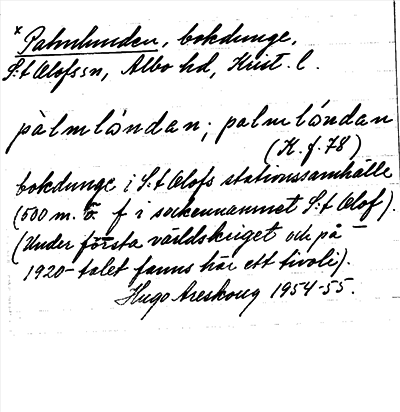 * Palmlunden, bokdunge,
S:t Olofs sn, Albo hd, Krist. l.
pàlmlo̊ndan; palmlo̊ndan
(K. f. 78)
bokdunge i S:t Olofs stationssamhälle
(500 m. ö. f i sockennamnet S:t Olof).
(Under första världskriget och på
1920-talet fanns här ett tivoli).
Hugo Areskoug 1954-55.